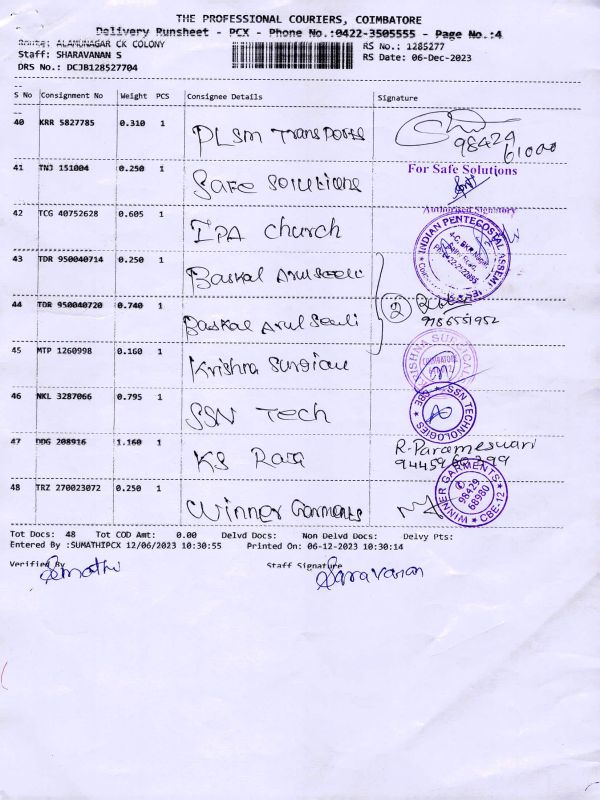 THE PROFESSIONAL COURIERS, COIMBATORE
Delivery Runsheet - PCX - Phone No.:0422-3505555 - Page No.:4
Route: ALAMUNAGAR CK COLONY
RS No.: 1285277
Staff: SHARAVANAN S
RS Date: 06-Dec-2023
DRS No.: DCJB128527704
S No Consignment No Weight PCS Consignee Details Signature
40 KRR 5827785 0.310 1 PLSM Transports
98429
61000
41 TNJ 151004 0.250 1 Safe Solutions
For Safe Solutions
Authorised Signatory
42 TCG 40752628 0.605 1 IPA Church
INDIAN PENTECOSTAL ASSEM
43 TDR 950040714 0.250 1 Baskal Arul Seeli
44 TDR 950040720 0.740 1 Baskal Arul Seeli
2
9786551952
45 MTP 1260998 0.160 1 Krishna Surgical
KRISHNA SURGICAL
COIMBATORE
46 NKL 3287066 0.795 1 SSN Tech
SSN TECHNOLOGIES CBE
47 DDG 208916 1.160 1 KS Raja
R. Parameswari
48 TRZ 270023072 0.250 1 Winner Garments
WINNER GARMENTS
98429
68980
CBE-12
Tot Docs: 48 Tot COD Amt: 0.00 Delvd Docs: Non Delvd Docs: Delvy Pts:
Entered By :SUMATHIPCX 12/06/2023 10:30:55 Printed On: 06-12-2023 10:30:14
Verified By Staff Signature
Sumathi Saravanan